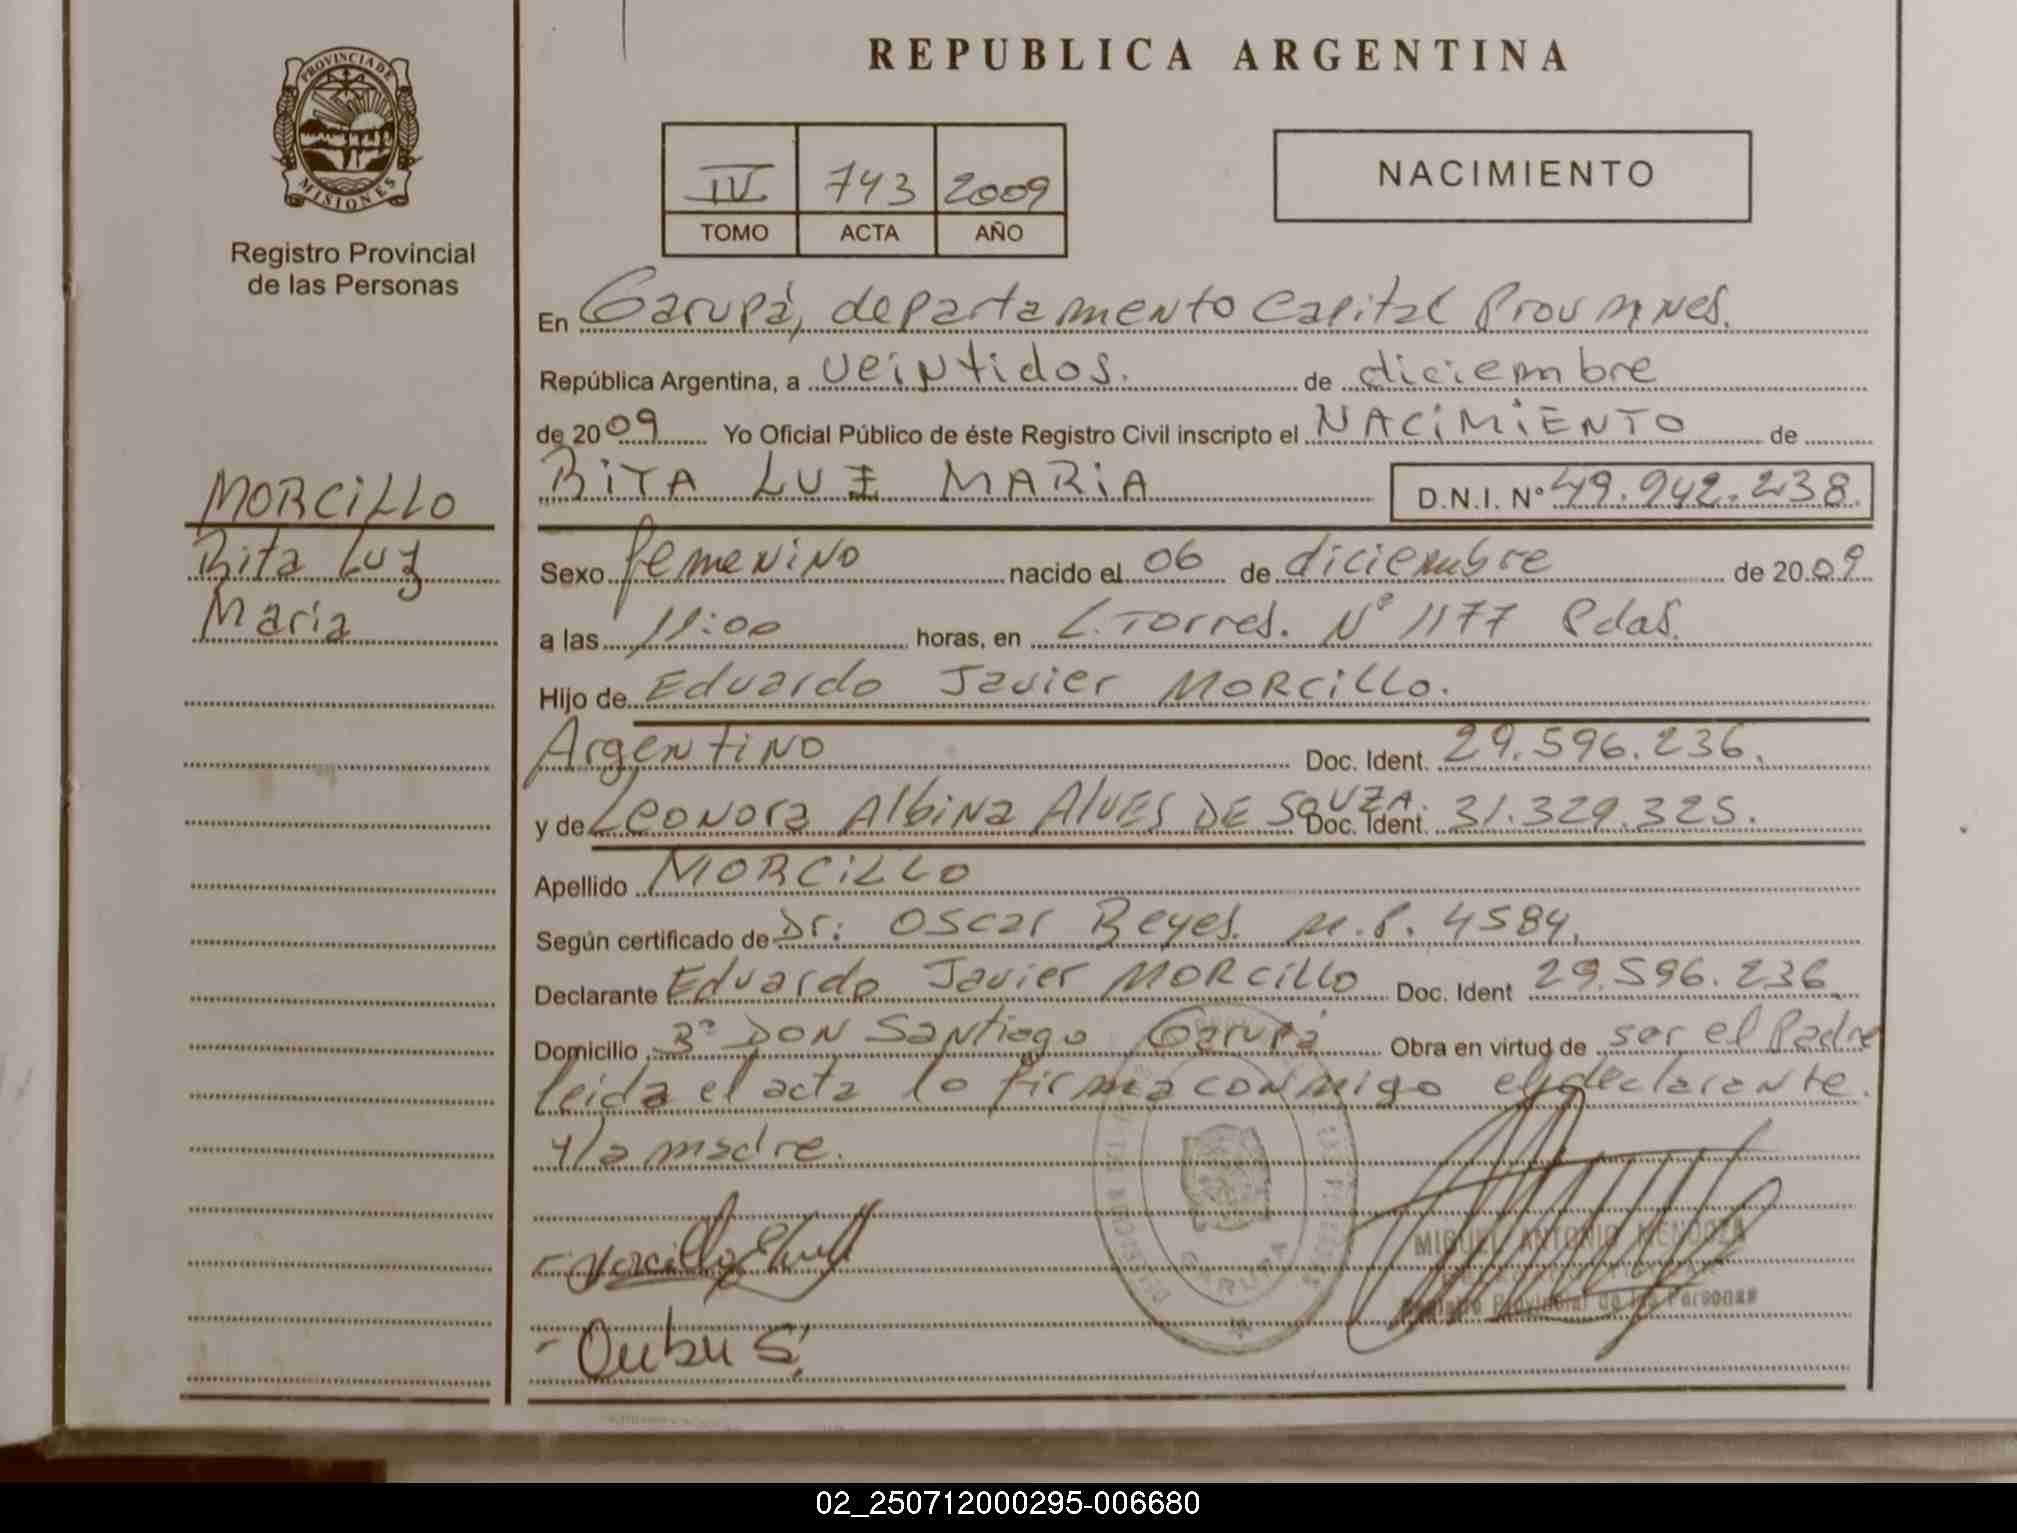 REPUBLICA ARGENTINA
PROVINCIA DE
MISIONES
Registro Provincial
de las Personas
IV 743 2009
TOMO ACTA AÑO
NACIMIENTO
MORCILLO
Rita Luz
Maria
En Garupá, departamento Capital Prov Mnes.
República Argentina, a veintidos. de diciembre
de 2009 Yo Oficial Público de éste Registro Civil inscripto el NACIMIENTO de
RITA LUZ MARIA D.N.I. N° 49.942.238.
Sexo femenino nacido el 06 de diciembre de 2009
a las 11:00 horas, en L. Torres. N° 1177 Pdas.
Hijo de Eduardo Javier MORCILLO.
Argentino Doc. Ident. 29.596.236.
y de Leonora Albina ALVES DE SOUZA. Doc. Ident. 31.329.325.
Apellido MORCILLO
Según certificado de Dr. Oscar Reyes. M.P. 4584.
Declarante Eduardo Javier MORCILLO Doc. Ident 29.596.236
Domicilio B° DON Santiago Garupá Obra en virtud de ser el Padre
leida el acta lo firma conmigo el declarante.
y la madre.
GARUPA
MIGUEL ANTONIO MENDOZA
Registro Provincial de las Personas
02_250712000295-006680